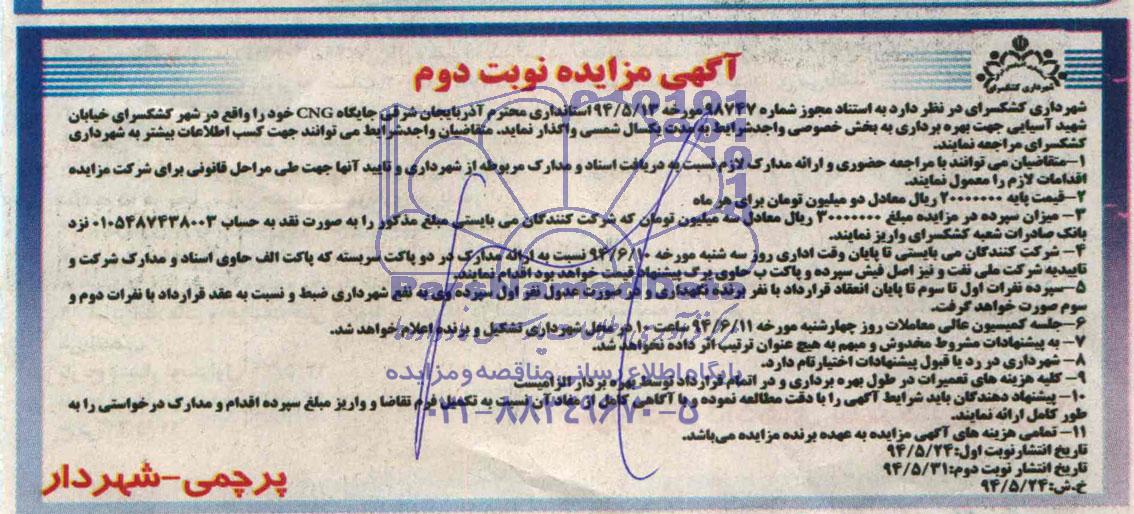 آگهی مزایده نوبت دوم
شهرداری کشکسرای
شهرداری کشکسرای در نظر دارد به استناد مجوز شماره ۹۸۷۴۷ مورخه ۹۴/۵/۱۳ استانداری محترم آذربایجان شرقی جایگاه CNG خود را واقع در شهر کشکسرای خیابان
شهید آسیایی جهت بهره برداری به بخش خصوصی واجدشرایط به مدت یکسال شمسی واگذار نماید. متقاضیان واجدشرایط می توانند جهت کسب اطلاعات بیشتر به شهرداری
کشکسرای مراجعه نمایند.
۱-متقاضیان می توانند با مراجعه حضوری و ارائه مدارک لازم نسبت به دریافت اسناد و مدارک مربوطه از شهرداری و تایید آنها جهت طی مراحل قانونی برای شرکت مزایده
اقدامات لازم را معمول نمایند.
۲-قیمت پایه ۲۰۰۰۰۰۰۰ ریال معادل دو میلیون تومان برای هر ماه
۳- میزان سپرده در مزایده مبلغ ۳۰۰۰۰۰۰۰ ریال معادل سه میلیون تومان که شرکت کنندگان می بایستی مبلغ مذکور را به صورت نقد به حساب ۰۱۰۵۴۸۷۴۳۸۰۰۳ نزد
بانک صادرات شعبه کشکسرای واریز نمایند.
۴- شرکت کنندگان می بایستی تا پایان وقت اداری روز سه شنبه مورخه ۹۴/۶/۱۰ نسبت به ارائه مدارک در دو پاکت سربسته که پاکت الف حاوی اسناد و مدارک شرکت و
تاییدیه شرکت ملی نفت و نیز اصل فیش سپرده و پاکت ب حاوی برگ پیشنهاد قیمت خواهد بود اقدام نمایند.
۵-سپرده نفرات اول تا سوم تا پایان انعقاد قرارداد با نفر برنده نگهداری و در صورت عدول نفر اول سپرده وی به نفع شهرداری ضبط و نسبت به عقد قرارداد با نفرات دوم و
سوم صورت خواهد گرفت.
۶-جلسه کمیسیون عالی معاملات روز چهارشنبه مورخه ۹۴/۶/۱۱ ساعت ۱۰ در محل شهرداری تشکیل و برنده اعلام خواهد شد.
۷- به پیشنهادات مشروط مخدوش و مبهم به هیچ عنوان ترتیب اثر داده نخواهد شد.
۸- شهرداری در رد یا قبول پیشنهادات اختیارتام دارد.
۹- کلیه هزینه های تعمیرات در طول بهره برداری و در اتمام قرارداد توسط بهره بردار الزامیست
۱۰- پیشنهاد دهندگان باید شرایط آگهی را با دقت مطالعه نموده و با آگاهی کامل از مفاد آن نسبت به تکمیل فرم تقاضا و واریز مبلغ سپرده اقدام و مدارک درخواستی را به
طور کامل ارائه نمایند.
۱۱- تمامی هزینه های آگهی مزایده به عهده برنده مزایده می‌باشد.
تاریخ انتشار نوبت اول: ۹۴/۵/۲۴
تاریخ انتشار نوبت دوم: ۹۴/۵/۳۱
خ.ش: ۹۴/۵/۲۴
پرچمی-شهردار
ParsNamadData
پایگاه اطلاع رسانی مناقصه و مزایده
۰۲۱-۸۸۳۴۹۶۷۰-۵